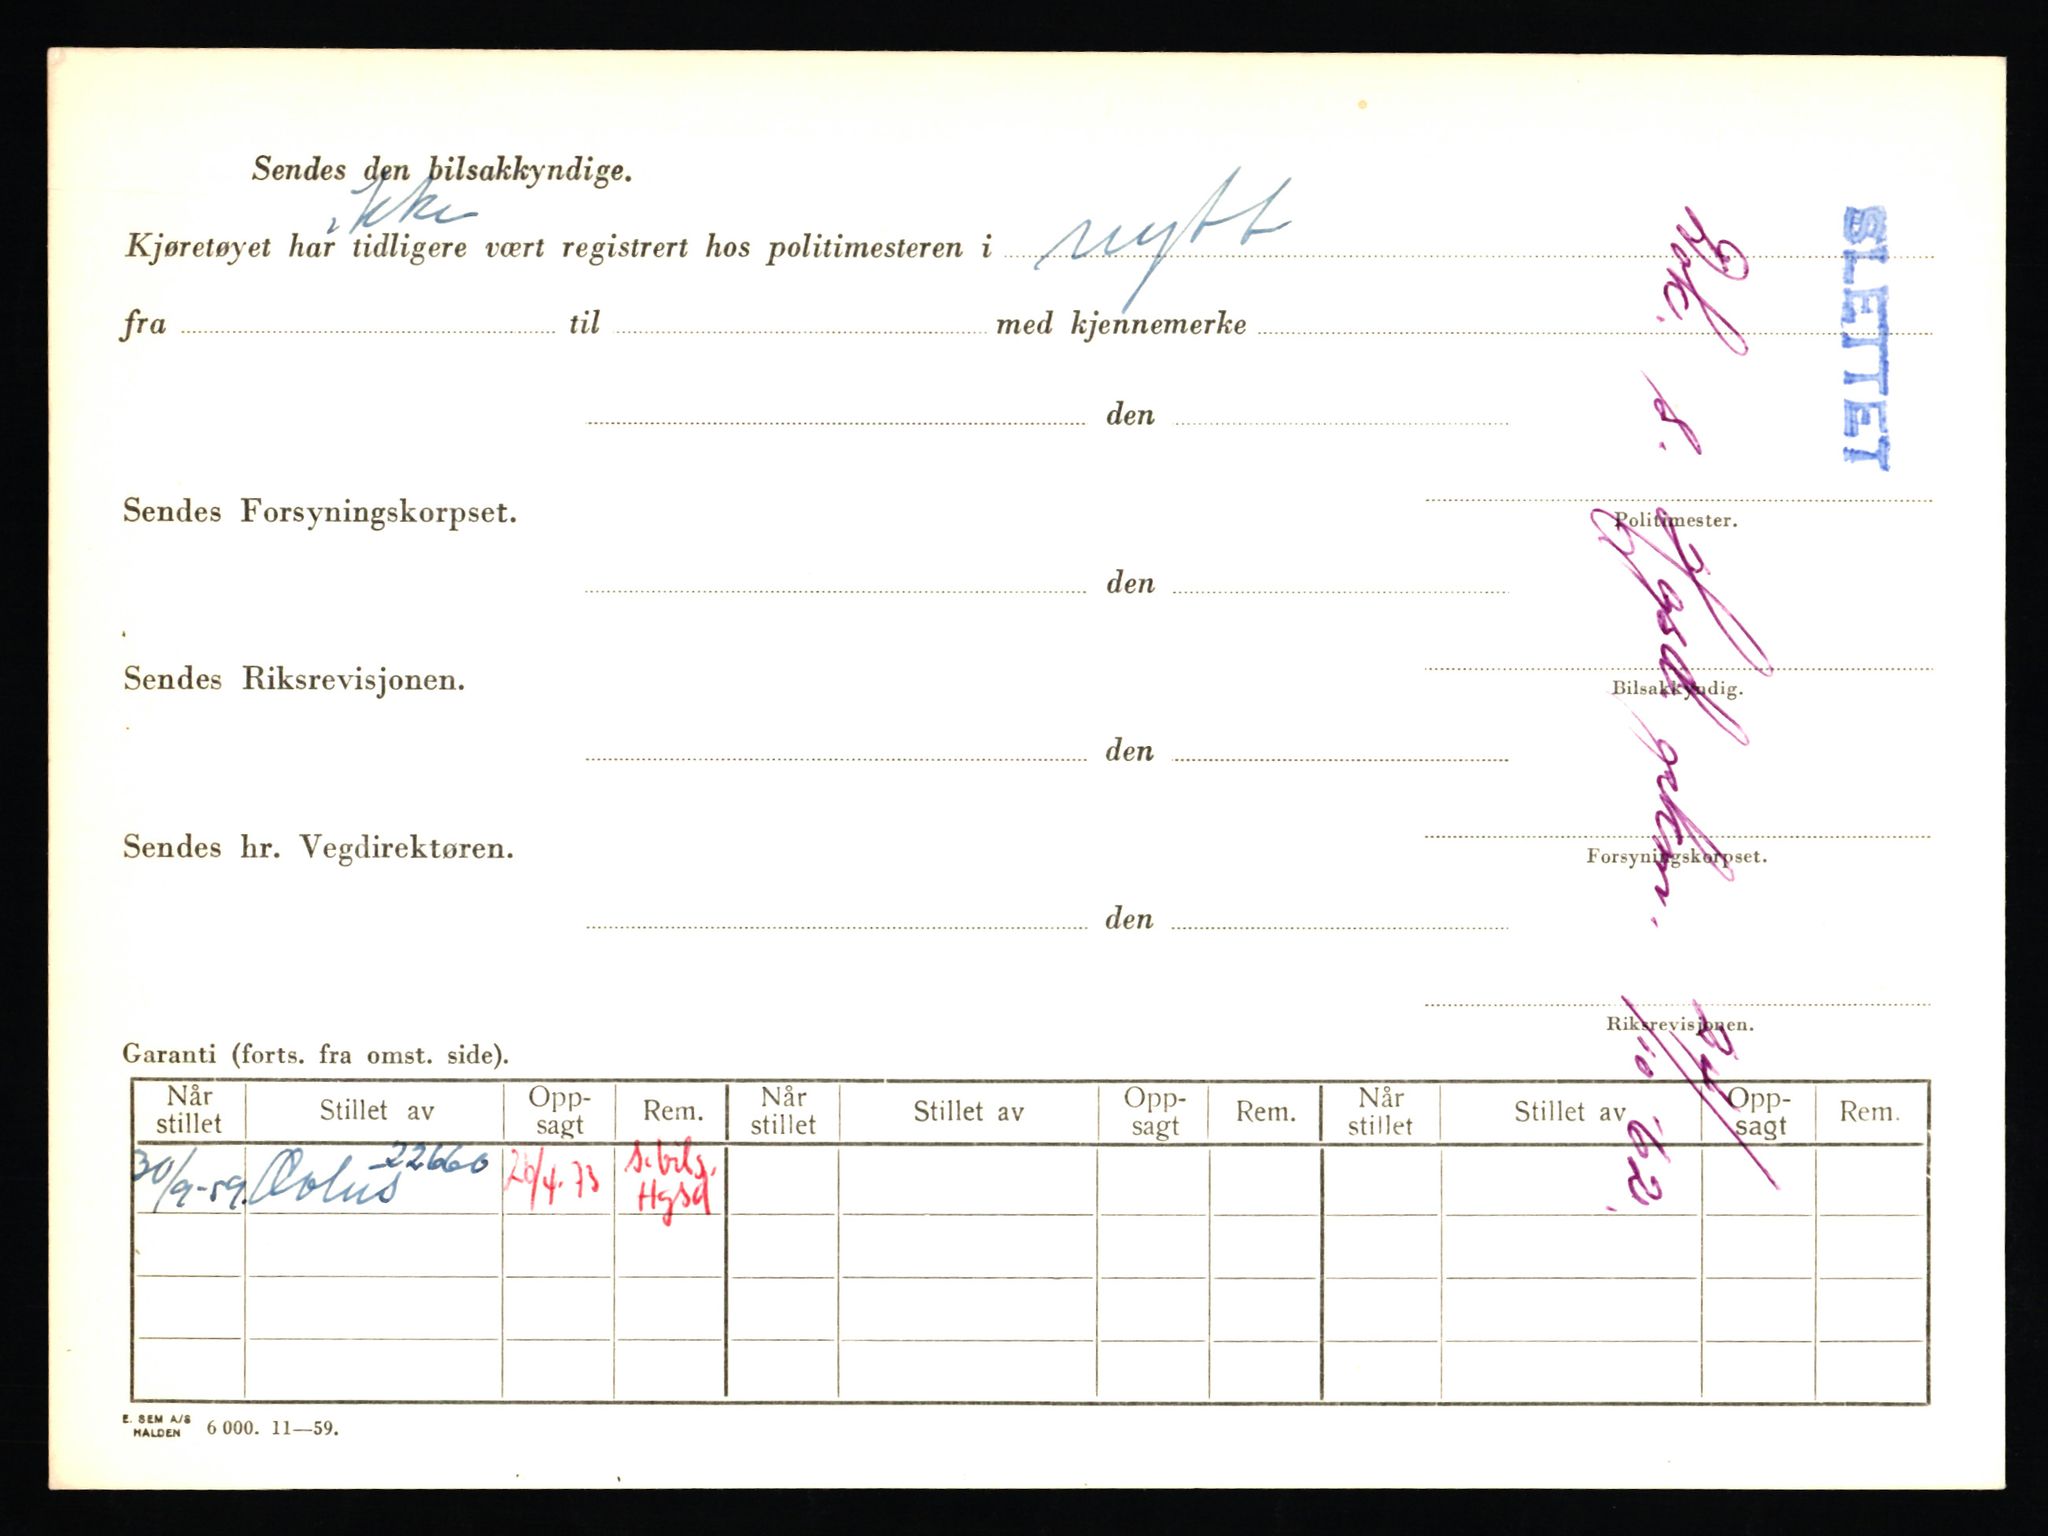 Sendes den bilsakkyndige.
ikke
Kjøretøyet har tidligere vært registrert hos politimesteren i nytt
fra til med kjennemerke
den
Politimester.
Sendes Forsyningskorpset.
den
Bilsakkyndig.
Sendes Riksrevisjonen.
den
Forsyningskorpset.
Sendes hr. Vegdirektøren.
den
Riksrevisjonen.
SLETTET
Garanti (forts. fra omst. side).
Når stillet Stillet av Opp-sagt Rem. Når stillet Stillet av Opp-sagt Rem. Når stillet Stillet av Opp-sagt Rem.
30/9-59. 22660 26/4.73 s. bilg. Hgsd
E. SEM A/S
HALDEN 6 000. 11—59.